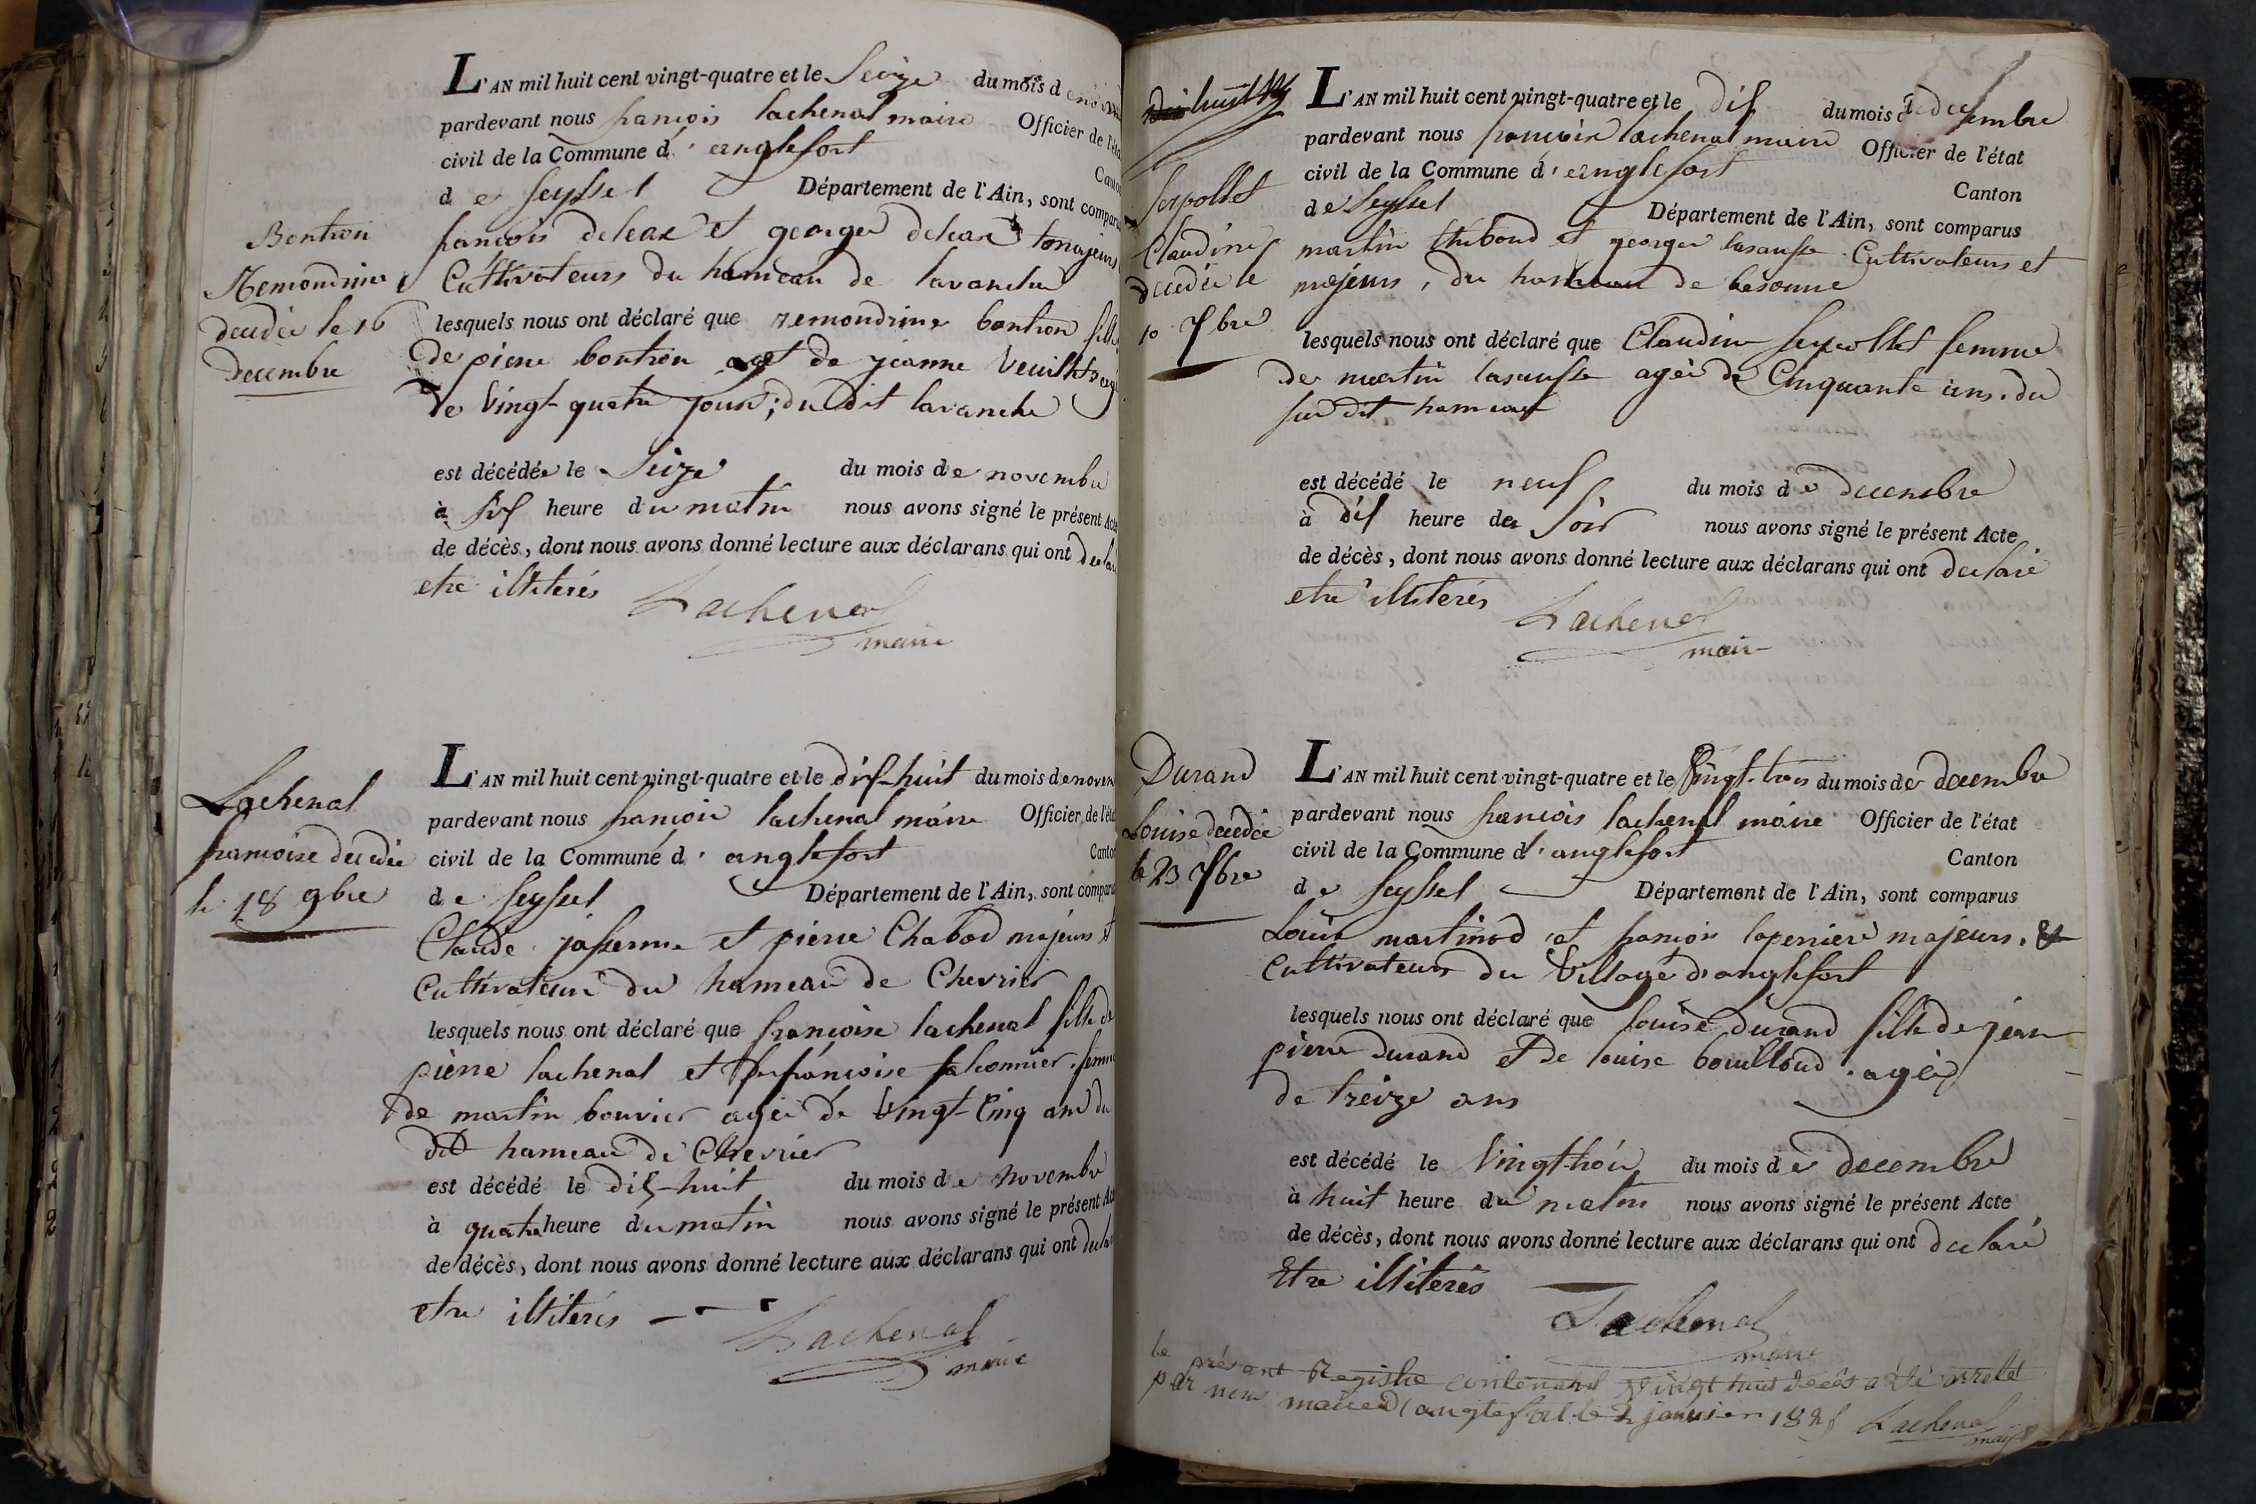 L'AN mil huit cent vingt-quatre et le Seize du mois d
pardevant nous françois lachenal maire Officier de l'éta
civil de la Commune d'anglefort Canton
de Seyssel Département de l'Ain, sont comparu
françois deleax et george deleax tous majeurs
Cultivateurs du hameau de lavanche
Bontron
Remondrine
decedée le 16
decembre
lesquels nous ont déclaré que remondrine bontron fille
de pierre bontron et de jeanne
de Vingt-quatre jours; du dit lavanche
est décédée le Seize du mois de novembre
à Six heure du matin nous avons signé le présent Acte
de décès, dont nous avons donné lecture aux déclarans qui ont
etre illiterés
Lachenal
maire
Lachenal
francoise decedée
le 18 9bre
L'AN mil huit cent vingt-quatre et le dix-huit du mois de novem
pardevant nous francois lachenal maire Officier de l'éta
civil de la Commune d'anglefort Canton
de Seyssel Département de l'Ain, sont compara
Claude jasserme et pierre Chabod majeurs et
Cultivateurs du hameau de Chevrier
lesquels nous ont déclaré que françoise lachenal fille de
pierre lachenal et françoise falconnier femme
de martin bouvier agée de Vingt-Cinq ans du
dit hameau de Chevrier
est décédé le dix-huit du mois de novembre
à quatre heure du matin nous avons signé le présent
de décès, dont nous avons donné lecture aux déclarans qui ont
etre illiterés
Lachenal
maire
Serpollet
Claudine
decedée le
10 Xbre
L'AN mil huit cent vingt-quatre et le dix du mois de decembre
pardevant nous francois lachenal maire Officier de l'état
civil de la Commune d'anglefort Canton
de Seyssel Département de l'Ain, sont comparus
martin thiboud et george lasausse Cultivateurs et
majeurs, du hameau de
lesquels nous ont déclaré que Claudine Serpollet femme
de martin lasausse agée de Cinquante ans. du
sus dit hameau
est décédé le neuf du mois de decembre
à dix heure du Soir nous avons signé le présent Acte
de décès, dont nous avons donné lecture aux déclarans qui ont declaré
etre illiterés
Lachenal
maire
Durand
Louise decedée
le 23 Xbre
L'AN mil huit cent vingt-quatre et le Vingt-trois du mois de decembre
pardevant nous francois lachenal maire Officier de l'état
civil de la Commune d'anglefort Canton
de Seyssel Département de l'Ain, sont comparus
Louis martinod et francois laperriere majeurs. &
Cultivateurs du Village d'anglefort
lesquels nous ont déclaré que louise durand fille de jean
pierre durand et de louise bouilloud. agée
de treize ans
est décédé le Vingt-trois du mois de decembre
à huit heure du matin nous avons signé le présent Acte
de décès, dont nous avons donné lecture aux déclarans qui ont declaré
Etre illiterés
Lachenal
maire
le présant Registre contenant vingt huit décès a été arreté
par nous maire d'anglefort le 2 janvier 1825 Lachenal
maire